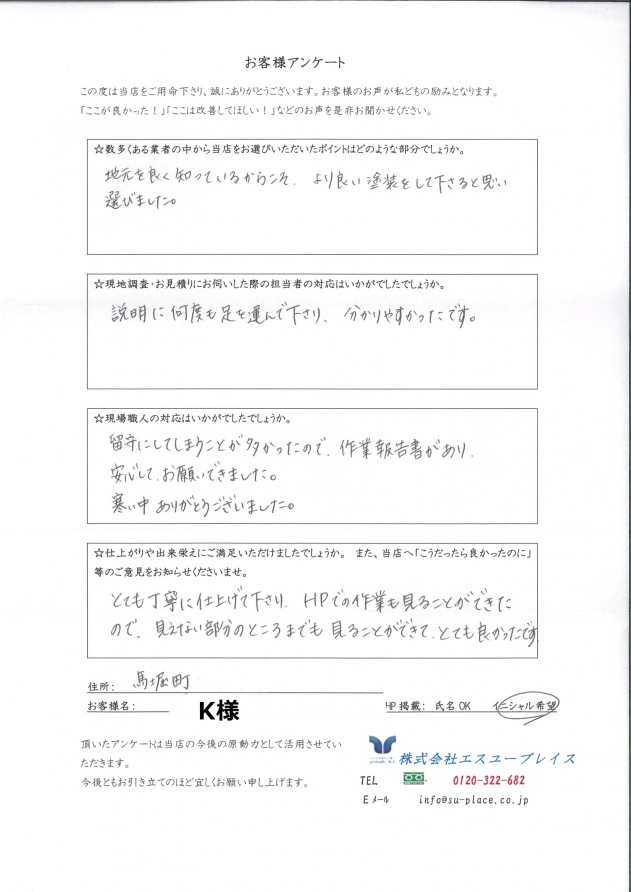 お客様アンケート
この度は当店をご用命下さり、誠にありがとうございます。お客様のお声が私どもの励みとなります。
「ここが良かった！」「ここは改善してほしい！」などのお声を是非お聞かせください。
☆数多くある業者の中から当店をお選びいただいたポイントはどのような部分でしょうか。
地元を良く知っているからこそ、より良い塗装をして下さると思い
選びました。
☆現地調査・お見積りにお伺いした際の担当者の対応はいかがでしたでしょうか。
説明に何度も足を運んで下さり、分かりやすかったです。
☆現場職人の対応はいかがでしたでしょうか。
留守にしてしまうことが多かったので、作業報告書があり、
安心して、お願いできました。
寒い中ありがとうございました。
☆仕上がりや出来栄えにご満足いただけましたでしょうか。 また、当店へ「こうだったら良かったのに」
等のご意見をお知らせくださいませ。
とても丁寧に仕上げて下さり、HPでの作業も見ることができた
ので、見えない部分のところまでも見ることができて、とても良かったです。
住所： 馬堀町
お客様名： K様 HP掲載： 氏名OK イニシャル希望
頂いたアンケートは当店の今後の原動力として活用させてい
ただきます。
今後ともお引き立てのほど宜しくお願い申し上げます。
株式会社エスユープレイス
TEL 0120-322-682
Eメール info@su-place.co.jp